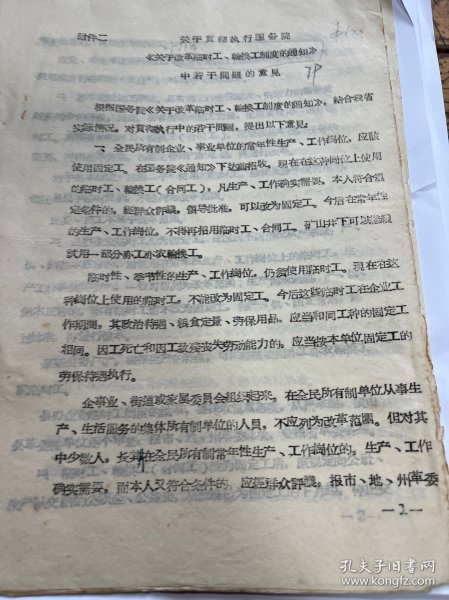 附件二
关于贯彻执行国务院
《关于改革临时工、轮换工制度的通知》
中若干问题的意见
根据国务院《关于改革临时工、轮换工制度的通知》，结合我省
实际情况，对贯彻执行中的若干问题，提出以下意见：
一、全民所有制企业、事业单位的常年性生产、工作岗位，应该
使用固定工。在国务院《通知》下达前招收，现在在这种岗位上使用
的临时工、轮换工（合同工），凡生产、工作确实需要，本人符合规
定条件的，经群众评议，领导批准，可以改为固定工。今后在常年性
的生产、工作岗位，不得再招用临时工、合同工。矿山井下可以继续
试用一部分亦工亦农轮换工。
临时性、季节性的生产、工作岗位，仍须使用临时工。现在在这
种岗位上使用的临时工，不能改为固定工。今后这些临时工在企业工
作期间，其政治待遇、粮食定量、劳保用品，应当和同工种的固定工
相同。因工死亡和因工致残丧失劳动能力的，应当按本单位固定工的
劳保待遇执行。
企事业、街道或家属委员会组织起来，在全民所有制单位从事生
产、生活服务的集体所有制单位的人员，不应列为改革范围。但对其
中少数人，长期在全民所有制常年性生产、工作岗位的，生产、工作
确实需要，而本人又符合条件的，应经群众評議，报市、地、州革委
—1—
孔夫子旧书网
www.kongfz.com